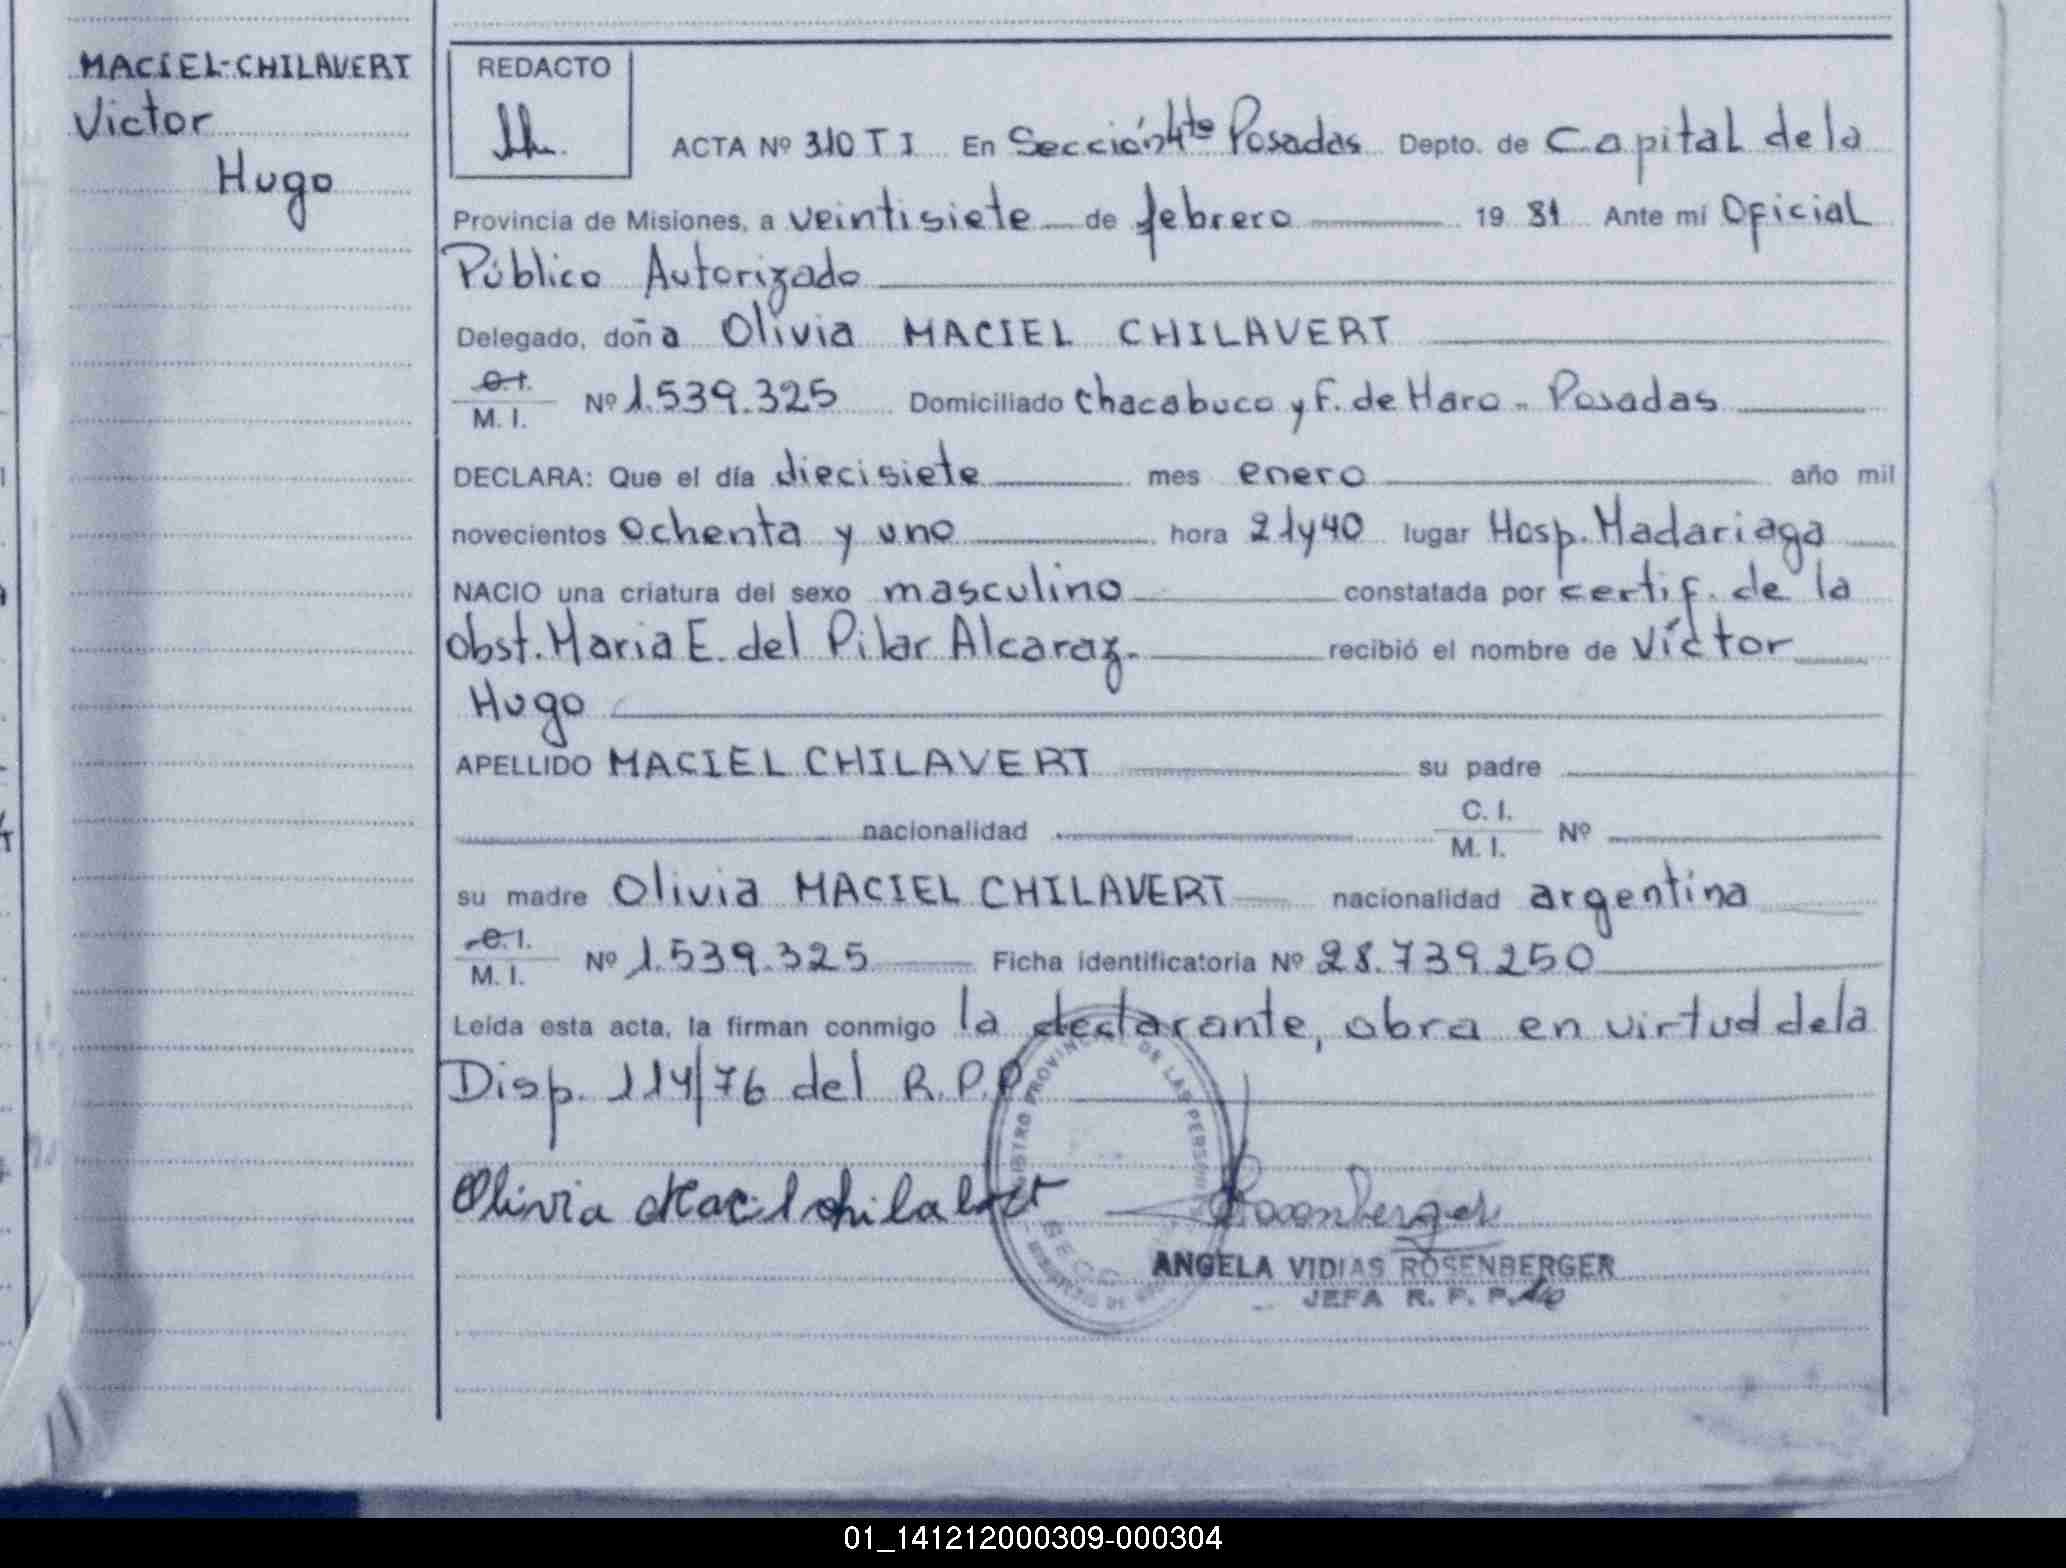 MACIEL-CHILAVERT
Victor
Hugo
REDACTO
ACTA Nº 310 T I En Sección 4ta Posadas Depto. de Capital de la
Provincia de Misiones, a veintisiete de febrero 19 81 Ante mí Oficial
Público Autorizado
Delegado, doña Olivia MACIEL CHILAVERT
C.I.
M. I. Nº 1.539.325 Domiciliado Chacabuco y F. de Haro - Posadas
DECLARA: Que el día diecisiete mes enero año mil
novecientos ochenta y uno hora 21y40 lugar Hosp. Madariaga
NACIO una criatura del sexo masculino constatada por certif. de la
obst. Maria E. del Pilar Alcaraz. recibió el nombre de Víctor
Hugo
APELLIDO MACIEL CHILAVERT su padre
nacionalidad C. I. Nº
M. I.
su madre Olivia MACIEL CHILAVERT nacionalidad argentina
C.I.
M. I. Nº 1.539.325 Ficha identificatoria Nº 28.739.250
Leída esta acta, la firman conmigo la declarante, obra en virtud de la
Disp. 114/76 del R.P.P.
REGISTRO PROVINCIAL DE LAS PERSONAS
Olivia Maciel chilabert
Rosenberger
ANGELA VIDIAS ROSENBERGER
JEFA R. P. P.
01_141212000309-000304